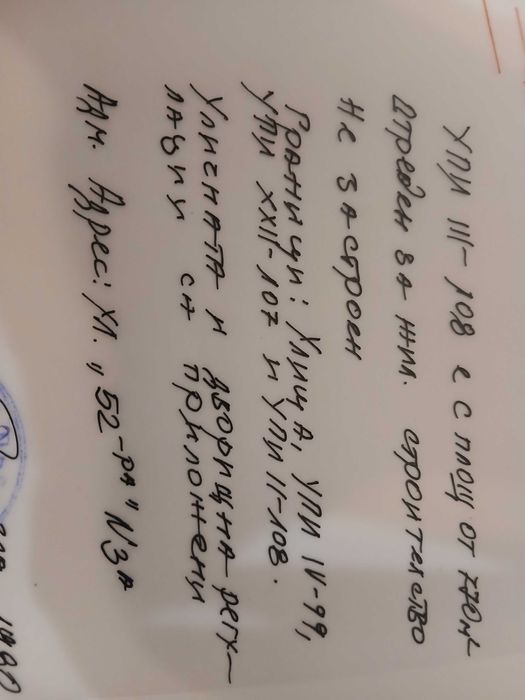 УПИ III-108 е с площ от 770 м²
Отреден за жил. строителство
Не застроен
Граници: Улица, УПИ IV-99,
УПИ XXII-107 и УПИ II-108.
Уличната и дворищна регу-
лации са приложени
Адм. Адрес: Ул. „52-ра" №3А